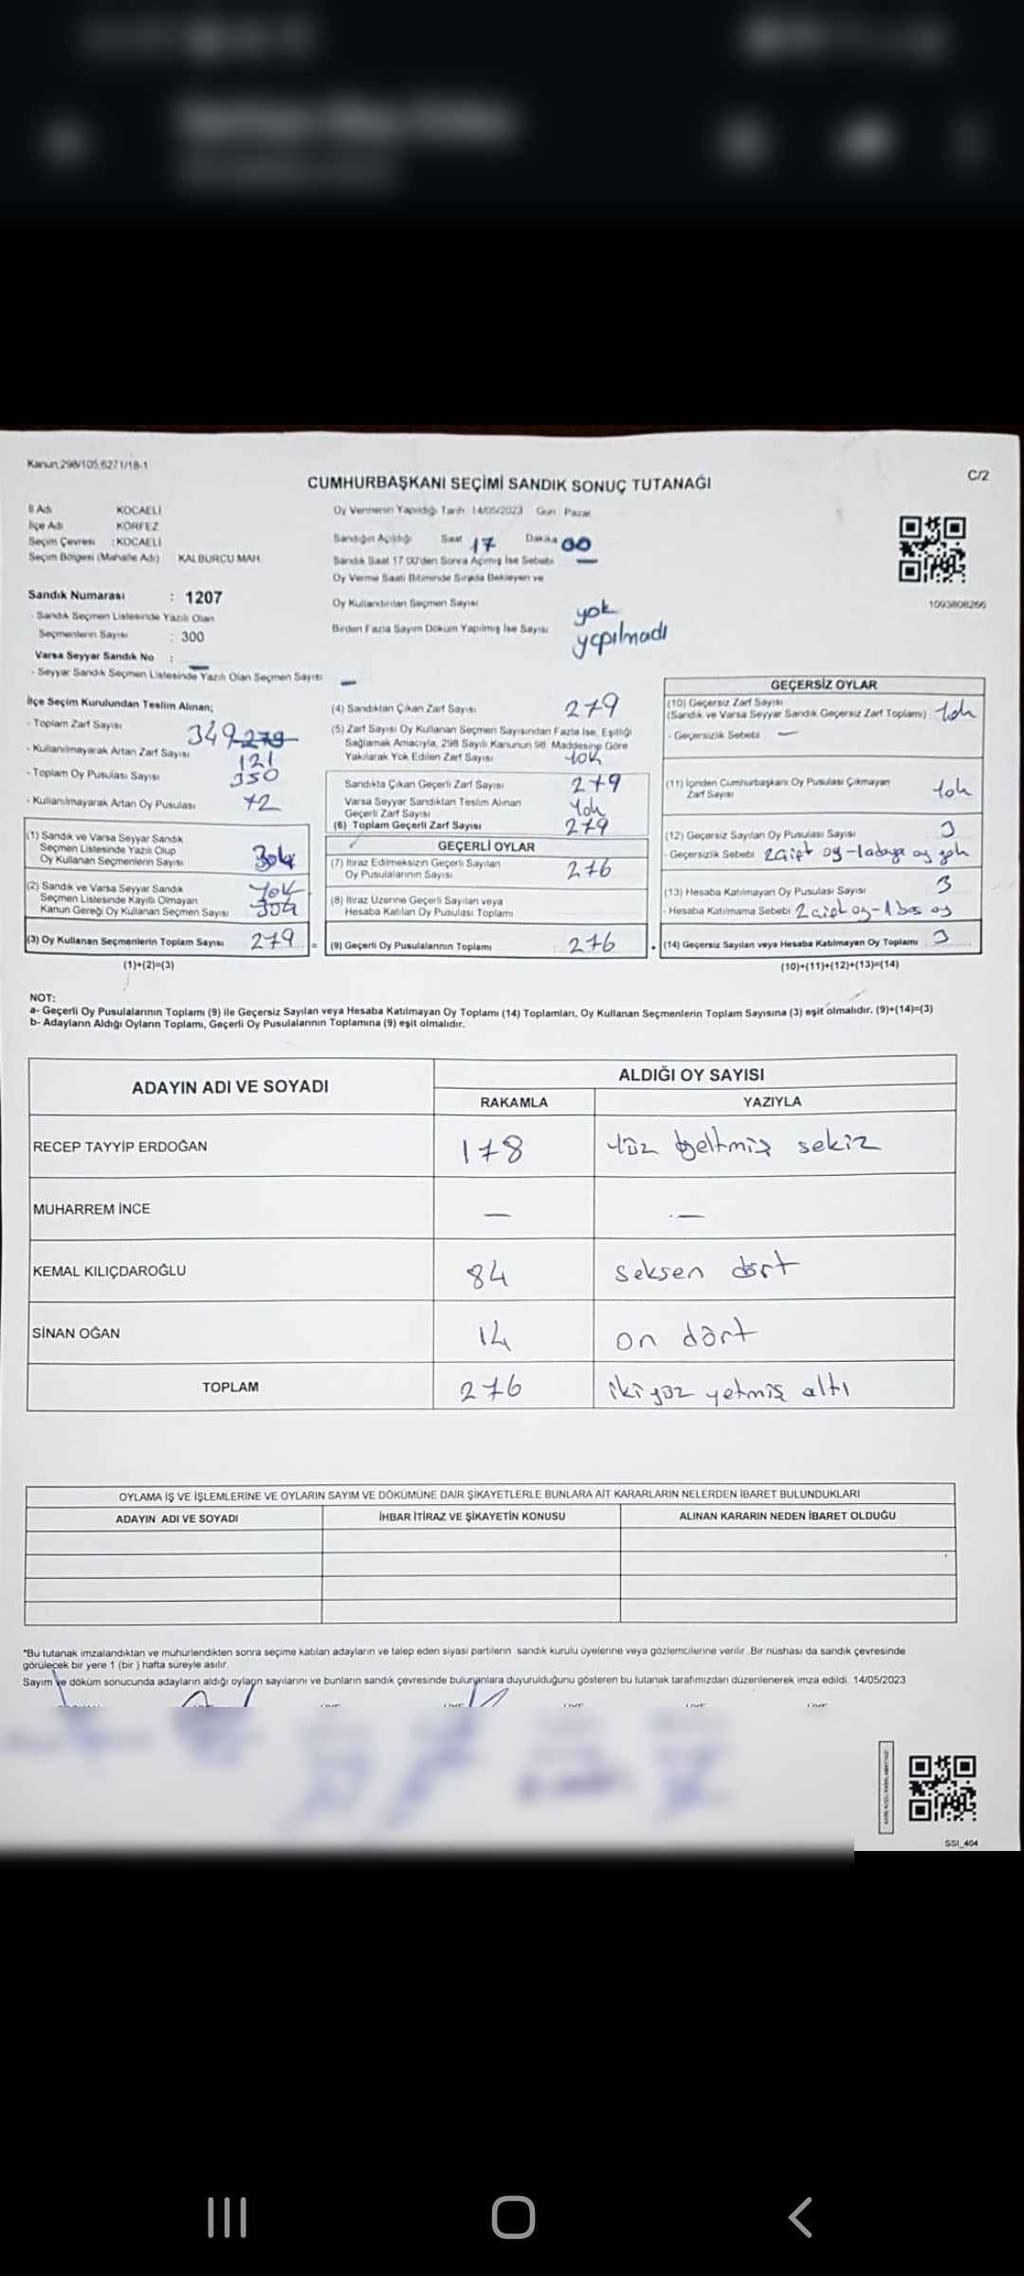 Kanun,298/105,6271/18-1
C/2
CUMHURBAŞKANI SEÇİMİ SANDIK SONUÇ TUTANAĞI
İl Adı KOCAELİ
İlçe Adı KÖRFEZ
Seçim Çevresi : KOCAELİ
Seçim Bölgesi (Mahalle Adı) KALBURCU MAH.
Sandık Numarası : 1207
- Sandık Seçmen Listesinde Yazılı Olan
Seçmenlerin Sayısı : 300
Varsa Seyyar Sandık No : —
- Seyyar Sandık Seçmen Listesinde Yazılı Olan Seçmen Sayısı: —
Oy Vermenin Yapıldığı Tarih 14/05/2023 Gün : Pazar
Sandığın Açıldığı Saat 17 Dakika 00
Sandık Saat 17.00'den Sonra Açılmış İse Sebebi —
Oy Verme Saati Bitiminde Sırada Bekleyen ve
Oy Kullandırılan Seçmen Sayısı yok
Birden Fazla Sayım Döküm Yapılmış İse Sayısı yapılmadı
1093808266
İlçe Seçim Kurulundan Teslim Alınan;
- Toplam Zarf Sayısı 349 279
- Kullanılmayarak Artan Zarf Sayısı 121
- Toplam Oy Pusulası Sayısı 350
- Kullanılmayarak Artan Oy Pusulası 72
(1) Sandık ve Varsa Seyyar Sandık
Seçmen Listesinde Yazılı Olup
Oy Kullanan Seçmenlerin Sayısı 304
(2) Sandık ve Varsa Seyyar Sandık
Seçmen Listesinde Kayıtlı Olmayan
Kanun Gereği Oy Kullanan Seçmen Sayısı Yok 304
(3) Oy Kullanan Seçmenlerin Toplam Sayısı 279
(1)+(2)=(3)
(4) Sandıktan Çıkan Zarf Sayısı 279
(5) Zarf Sayısı Oy Kullanan Seçmen Sayısından Fazla İse, Eşitliği
Sağlamak Amacıyla, 298 Sayılı Kanunun 98. Maddesine Göre
Yakılarak Yok Edilen Zarf Sayısı Yok
Sandıkta Çıkan Geçerli Zarf Sayısı 279
Varsa Seyyar Sandıktan Teslim Alınan
Geçerli Zarf Sayısı Yok
(6) Toplam Geçerli Zarf Sayısı 279
GEÇERLİ OYLAR
(7) İtiraz Edilmeksizin Geçerli Sayılan
Oy Pusulalarının Sayısı 276
(8) İtiraz Üzerine Geçerli Sayılan veya
Hesaba Katılan Oy Pusulası Toplamı
(9) Geçerli Oy Pusulalarının Toplamı 276
GEÇERSİZ OYLAR
(10) Geçersiz Zarf Sayısı
(Sandık ve Varsa Seyyar Sandık Geçersiz Zarf Toplamı) Yok
- Geçersizlik Sebebi —
(11) İçinden Cumhurbaşkanı Oy Pusulası Çıkmayan
Zarf Sayısı Yok
(12) Geçersiz Sayılan Oy Pusulası Sayısı 3
- Geçersizlik Sebebi 2 çift oy-1 adaya oy yok
(13) Hesaba Katılmayan Oy Pusulası Sayısı 3
- Hesaba Katılmama Sebebi 2 çift oy-1 boş oy
(14) Geçersiz Sayılan veya Hesaba Katılmayan Oy Toplamı 3
(10)+(11)+(12)+(13)=(14)
NOT:
a- Geçerli Oy Pusulalarının Toplamı (9) ile Geçersiz Sayılan veya Hesaba Katılmayan Oy Toplamı (14) Toplamları, Oy Kullanan Seçmenlerin Toplam Sayısına (3) eşit olmalıdır. (9)+(14)=(3)
b- Adayların Aldığı Oyların Toplamı, Geçerli Oy Pusulalarının Toplamına (9) eşit olmalıdır.
ADAYIN ADI VE SOYADI ALDIĞI OY SAYISI
RAKAMLA YAZIYLA
RECEP TAYYİP ERDOĞAN 178 yüz yetmiş sekiz
MUHARREM İNCE — —
KEMAL KILIÇDAROĞLU 84 seksen dört
SİNAN OĞAN 14 on dört
TOPLAM 276 iki yüz yetmiş altı
OYLAMA İŞ VE İŞLEMLERİNE VE OYLARIN SAYIM VE DÖKÜMÜNE DAİR ŞİKAYETLERLE BUNLARA AİT KARARLARIN NELERDEN İBARET BULUNDUKLARI
ADAYIN ADI VE SOYADI İHBAR İTİRAZ VE ŞİKAYETİN KONUSU ALINAN KARARIN NEDEN İBARET OLDUĞU
*Bu tutanak imzalandıktan ve mühürlendikten sonra seçime katılan adayların ve talep eden siyasi partilerin sandık kurulu üyelerine veya gözlemcilerine verilir. Bir nüshası da sandık çevresinde
görülecek bir yere 1 (bir) hafta süreyle asılır.
Sayım ve döküm sonucunda adayların aldığı oyların sayılarını ve bunların sandık çevresinde bulunanlara duyurulduğunu gösteren bu tutanak tarafımızdan düzenlenerek imza edildi. 14/05/2023
SSI_404